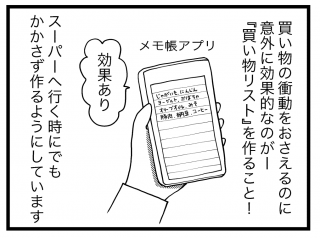 買い物の衝動をおさえるのに
意外に効果的なのがー
『買い物リスト』を作ること！
メモ帳アプリ
じゃがいも にんじん
ヨーグルト
効果あり
スーパーへ行く時にでも
かかさず作るようにしています